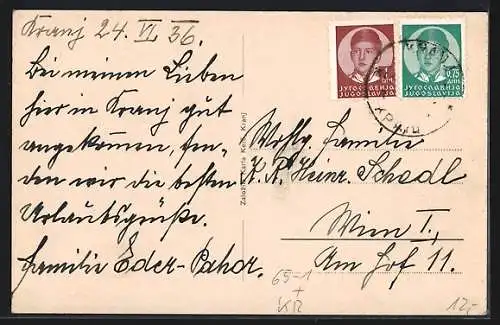 Kranj 24. VI. 36.
Bei meinen Lieben
hier in Kranj gut
angekommen, sen-
den wir die besten
Urlaubsgrüße.
Familie Eder-Pahor.
ЈУГОСЛАВИЈА
JUGOSLAVIJA
0,75
ДИН.
ЈУГОСЛАВИЈА
JUGOSLAVIJA
Založila
Kranj
Wohlg. Familie
Heinr. Schedl
Wien I.,
Am Hof 11.
65-1
+
KR
12,-